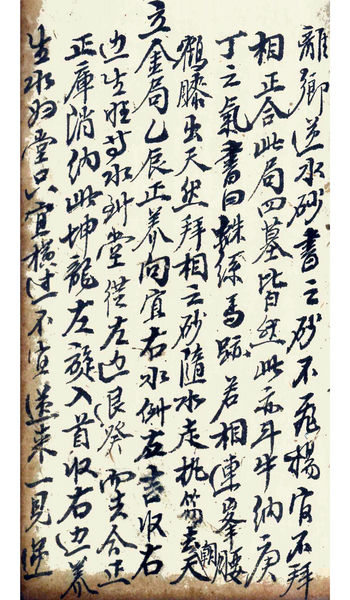 離鄉逆水砂書云砂不飛揚官不拜
相正合此局四墓皆然此亦斗牛納庚
丁之氣書曰蛛絲馬跡若相連峯腰
鶴膝出天然拜相之砂隨水走抱笏去朝天
立金局乙辰正养向宜右水倒左收右
边生旺苛水到堂從左边艮癸而去合正
正庫消納此坤龍左旋入首收右边养
生水好堂只宜橫过不宜逆來一見逆